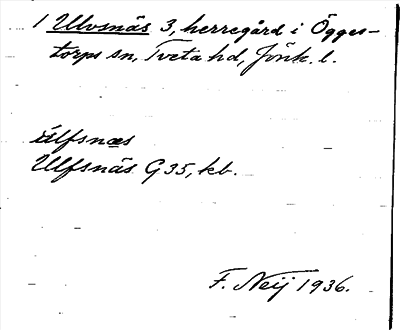 1 Ulvsnäs 3, herregård i Ögges-
torps sn, Tveta hd, Jönk. l.
ulfsnæs
Ulfsnäs G 35, kb.
F. Neij 1936.